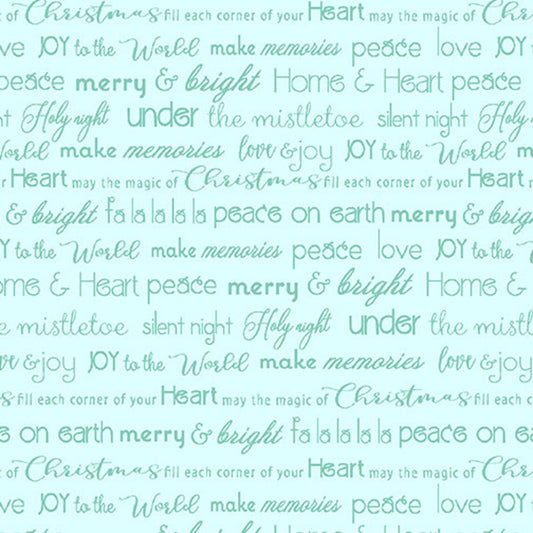 of Christmas fill each corner of your Heart may the magic of Christmas
ve JOY to the World make memories peace love JOY
peace merry & bright Home & Heart peace
t Holy night under the mistletoe silent night Holy
World make memories love & joy JOY to the World m
r Heart may the magic of Christmas fill each corner of your Heart m
& bright fa la la la la peace on earth merry & brig
Y to the World make memories peace love JOY to the
ome & Heart peace merry & bright Home &
e mistletoe silent night Holy night under the mistl
ve & joy JOY to the World make memories love & joy
s fill each corner of your Heart may the magic of Christmas fill each c
e on earth merry & bright fa la la la la peace on ea
c of Christmas fill each corner of your Heart may the magic of Chri
ve JOY to the World make memories peace love JOY